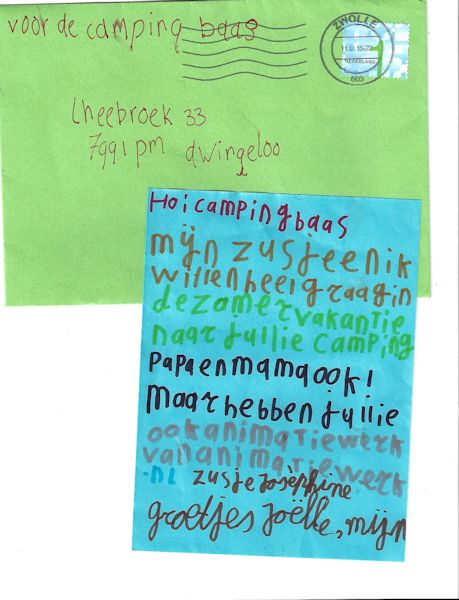 voor de camping baas
ZWOLLE
NEDERLAND
Lheebroek 33
7991pm dwingeloo
Hoi campingbaas
mijn zusje en ik
willen heel graag in
de zamervakantie
naar jullie camping
papa en mama ook!
maar hebben jullie
ook animatiewerk
van animatiewerk
.nl zusje Josèphine
groetjes Joëlle, mijn